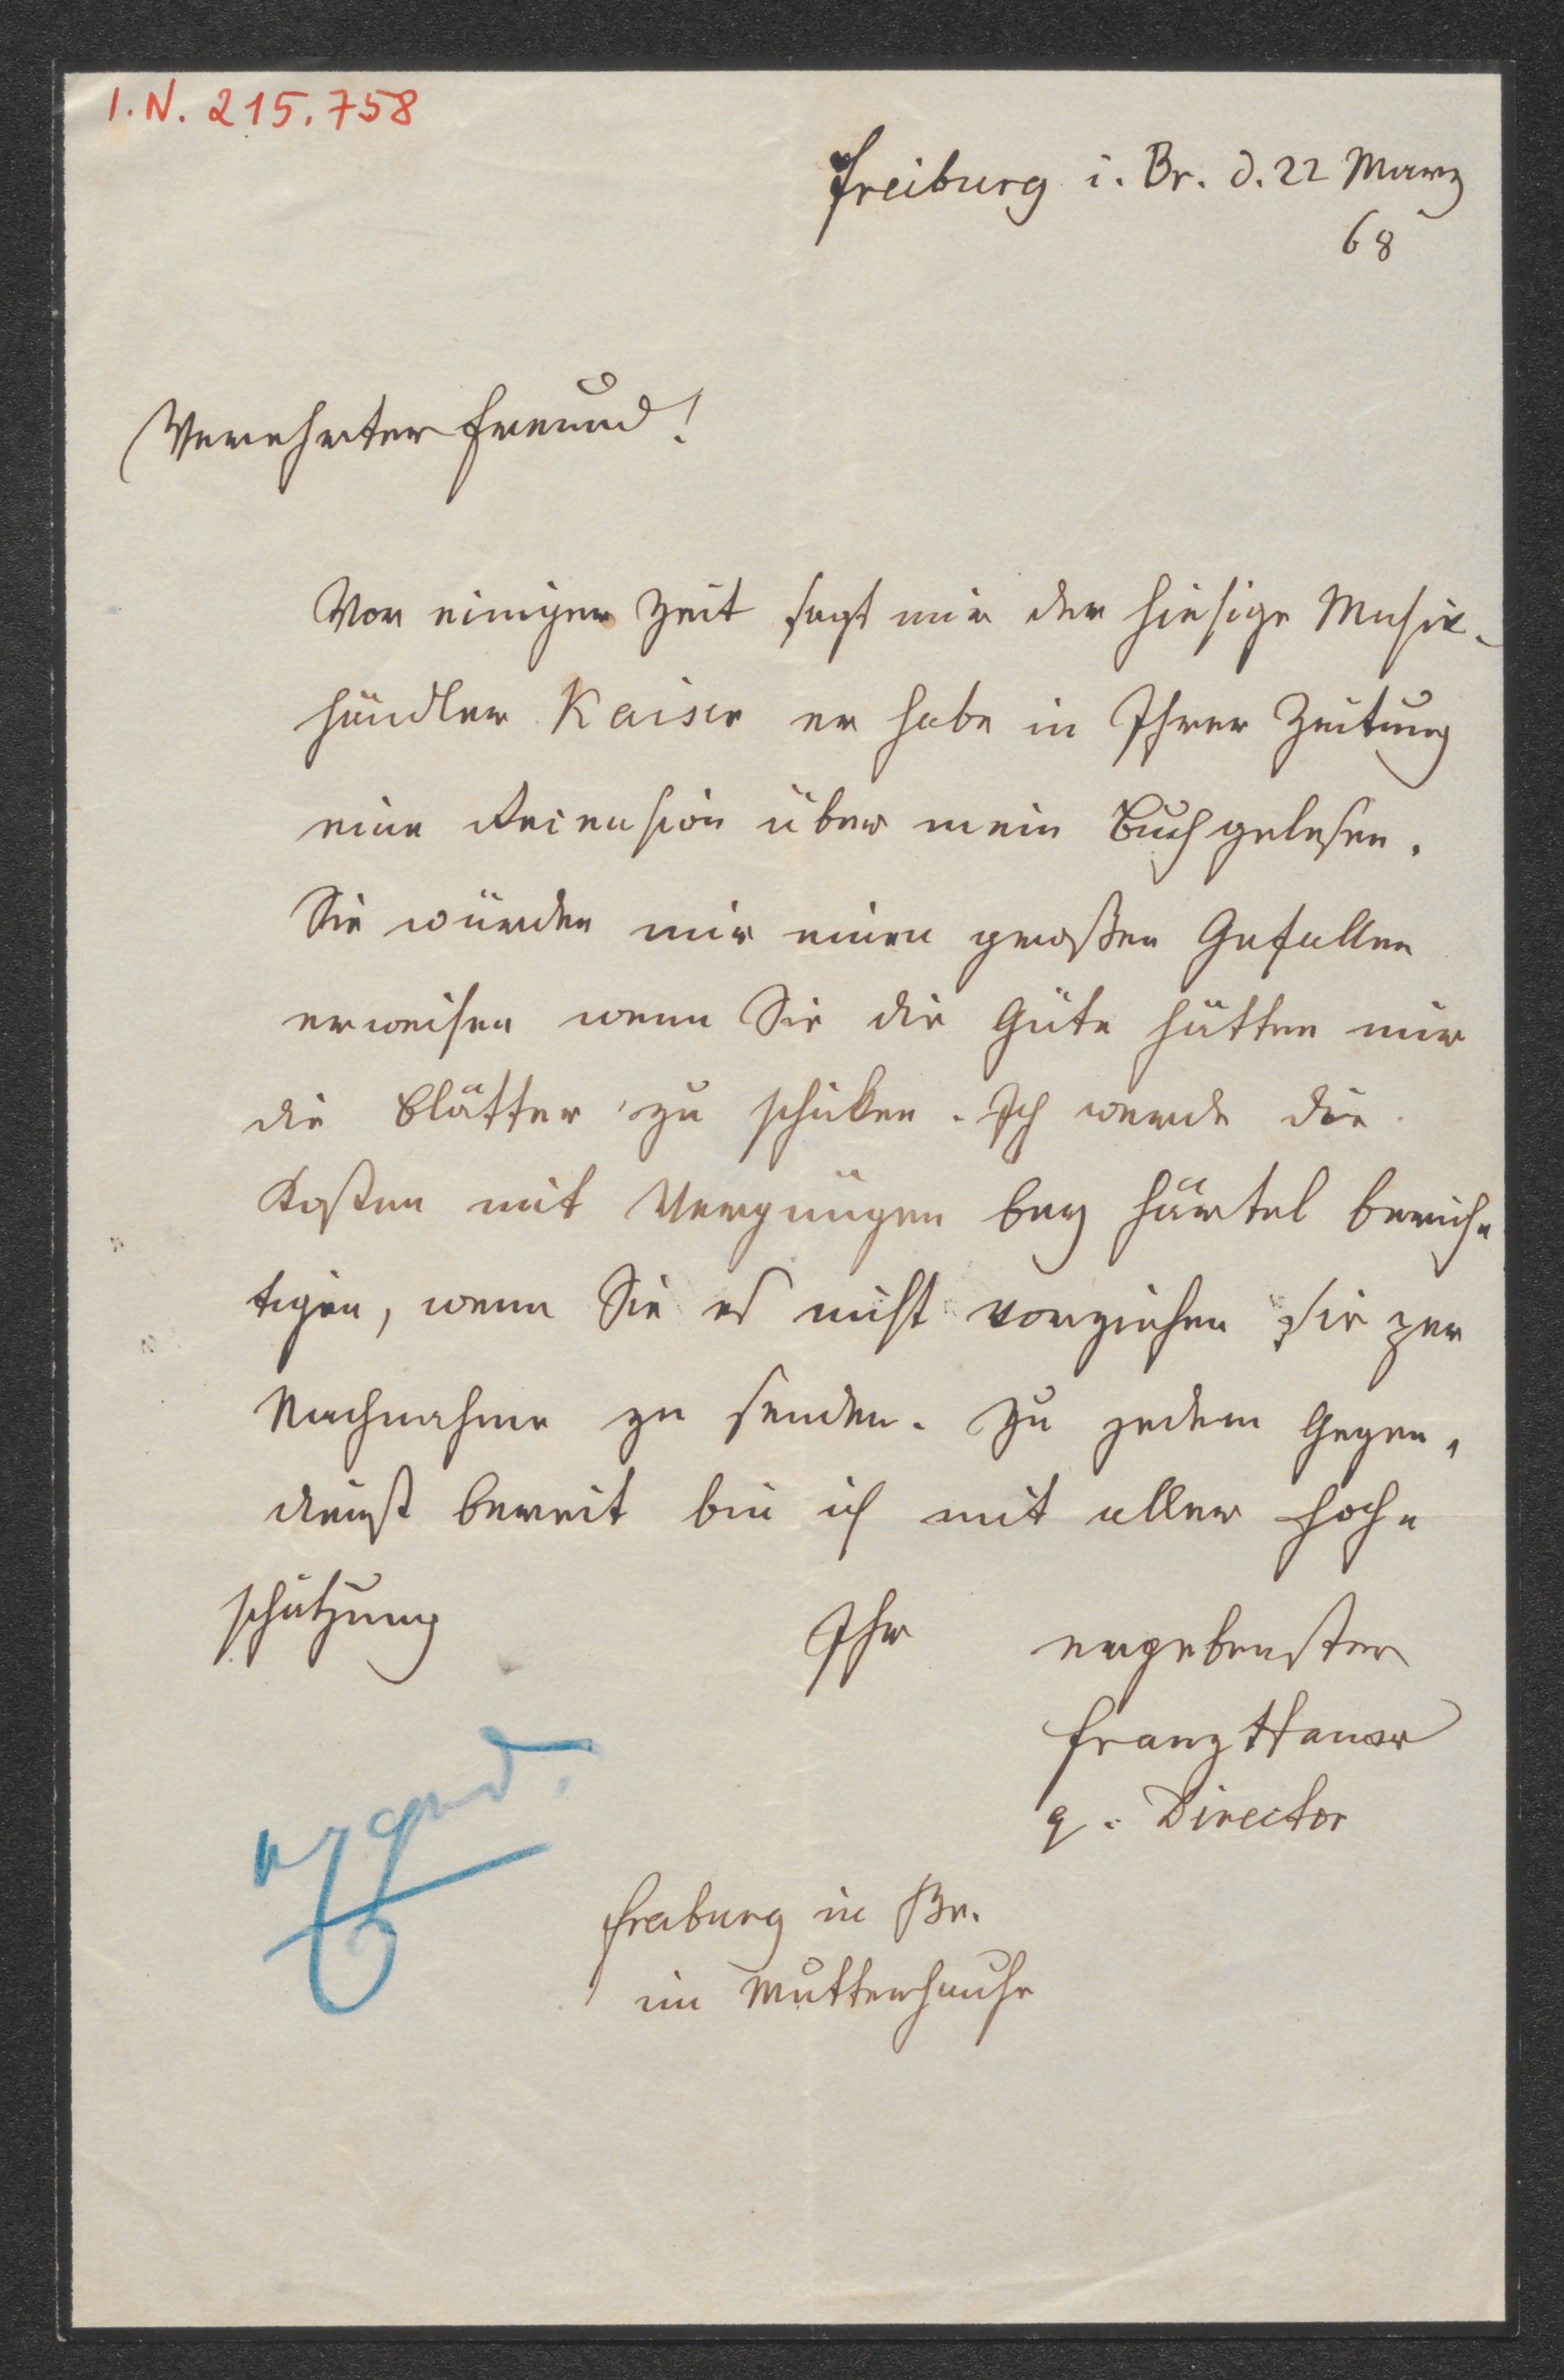 I.N. 215.758
Freiburg i. Br. d. 22 März
68
Verehrter Freund!
Vor einiger Zeit sagt mir der hiesige Musik-
händler Kaiser er habe in Ihrer Zeitung
eine Recension über mein Buch gelesen.
Sie würden mir einen großen Gefallen
erweisen wenn Sie die Güte hätten mir
die Blätter zu schicken. Ich werde die
Kosten mit Vergnügen bey Härtel berich-
tigen, wenn Sie es nicht vorziehen sie per
Nachnahme zu senden. Zu jedem Gegen-
dienst bereit bin ich mit aller Hoch-
schätzung
Ihr ergebenster
Franz Hauser
q. Director
Freiburg in Br.
im Mutterhause